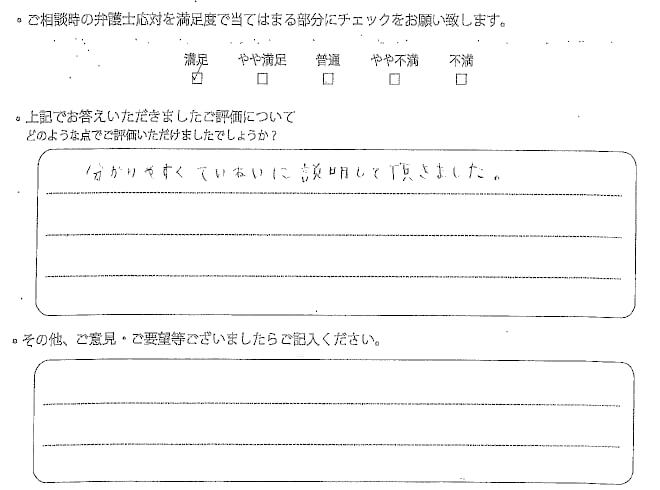 。ご相談時の弁護士応対を満足度で当てはまる部分にチェックをお願い致します。
満足 やや満足 普通 やや不満 不満
。上記でお答えいただきましたご評価について
どのような点でご評価いただけましたでしょうか？
分かりやすくていねいに説明して頂きました。
。その他、ご意見・ご要望等ございましたらご記入ください。